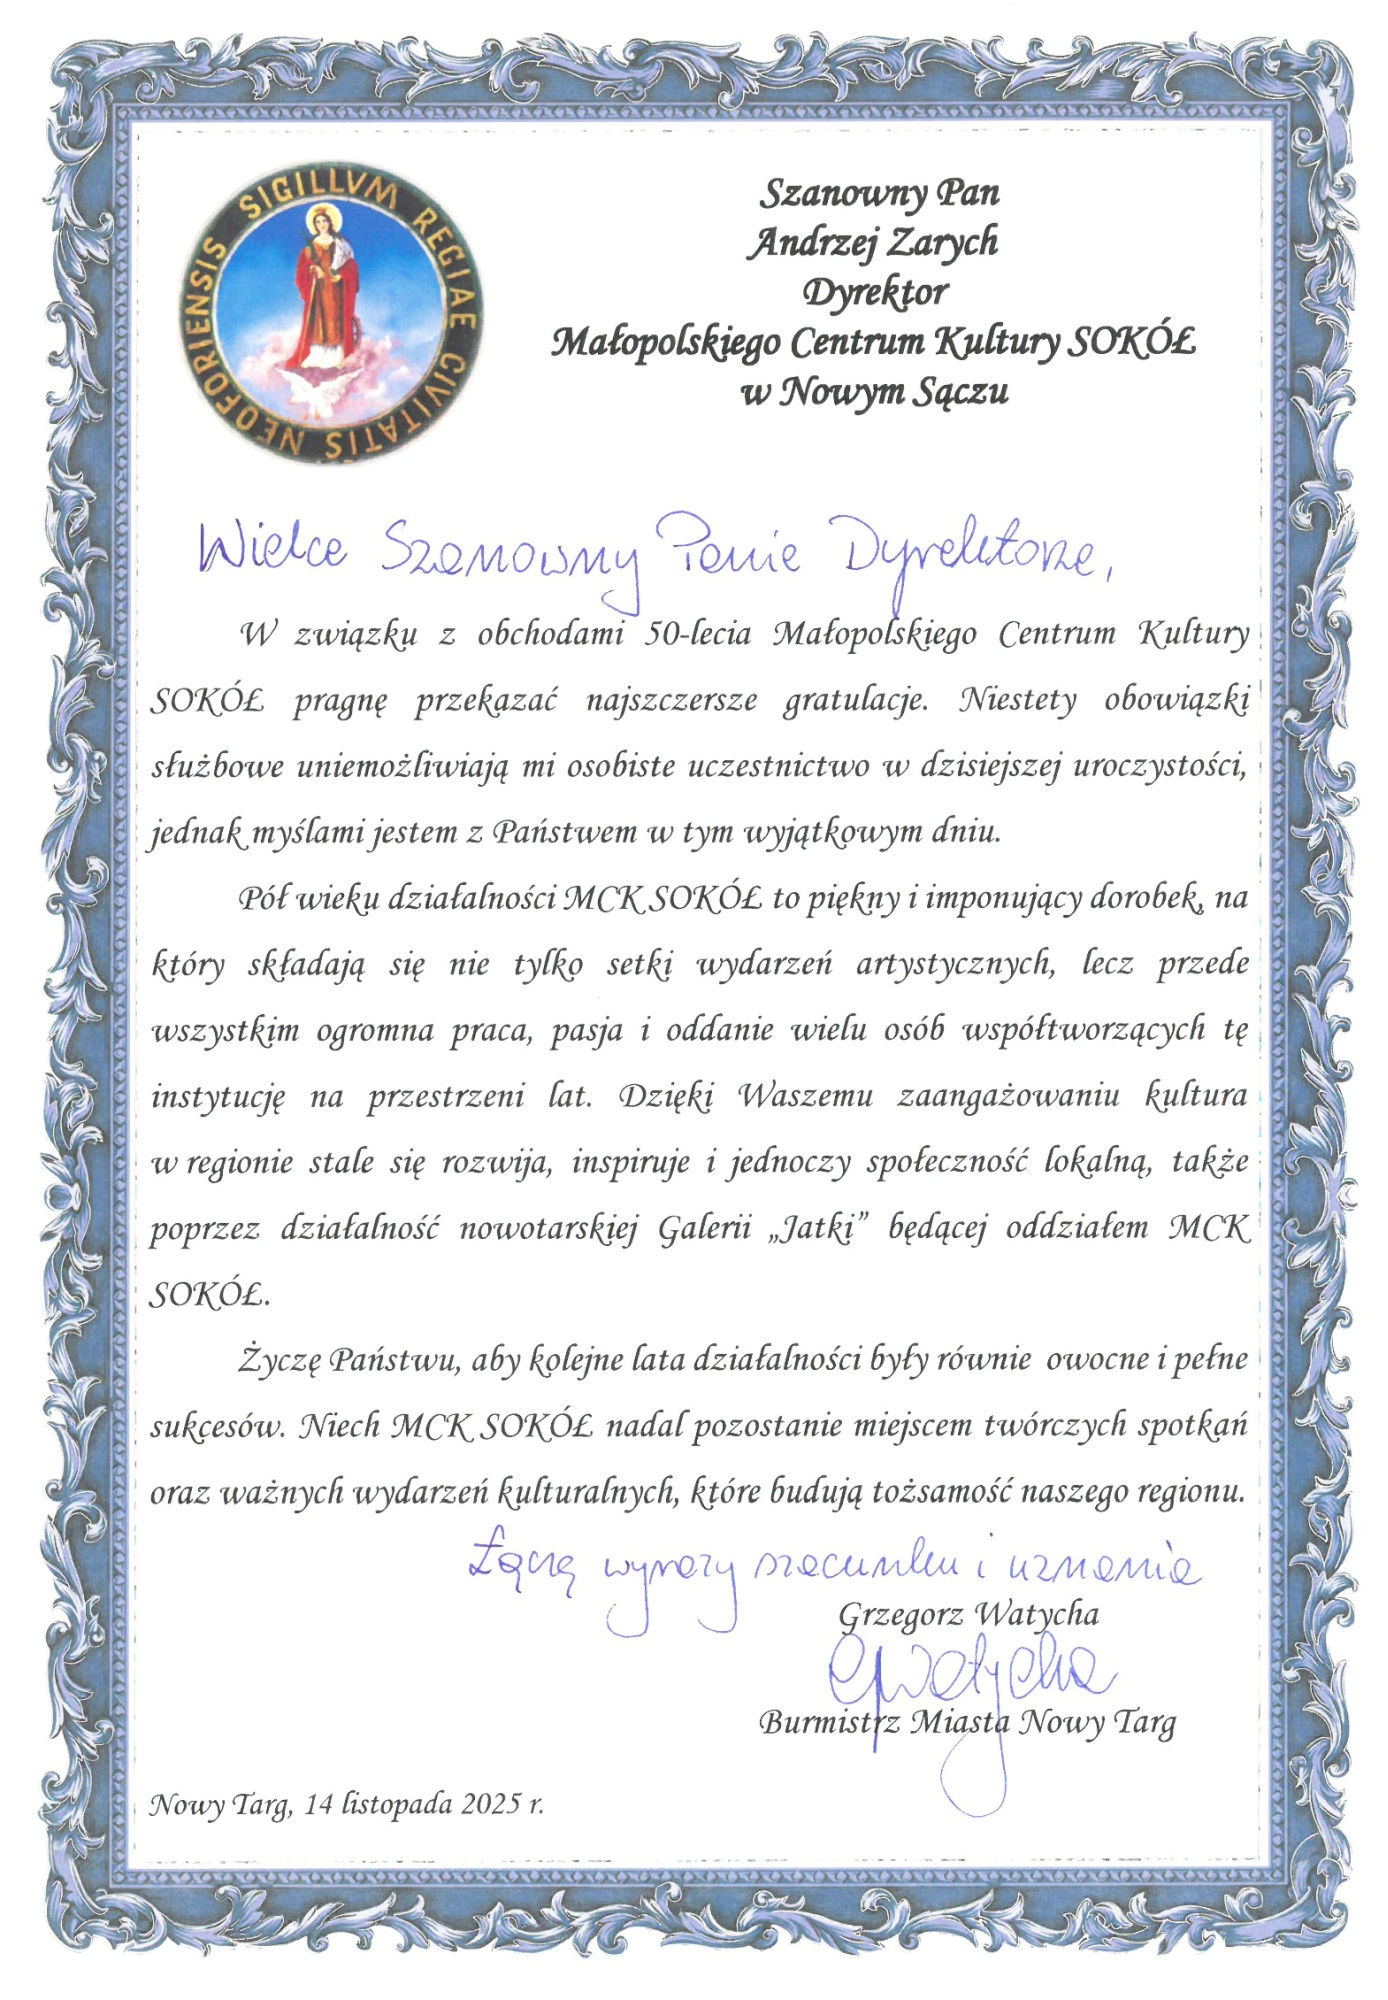 SIGILLVM REGIAE CIVITATIS NEOFORIENSIS
Szanowny Pan
Andrzej Zarych
Dyrektor
Małopolskiego Centrum Kultury SOKÓŁ
w Nowym Sączu
Wielce Szanowny Panie Dyrektorze,
W związku z obchodami 50-lecia Małopolskiego Centrum Kultury
SOKÓŁ pragnę przekazać najszczersze gratulacje. Niestety obowiązki
służbowe uniemożliwiają mi osobiste uczestnictwo w dzisiejszej uroczystości,
jednak myślami jestem z Państwem w tym wyjątkowym dniu.
Pół wieku działalności MCK SOKÓŁ to piękny i imponujący dorobek, na
który składają się nie tylko setki wydarzeń artystycznych, lecz przede
wszystkim ogromna praca, pasja i oddanie wielu osób współtworzących tę
instytucję na przestrzeni lat. Dzięki Waszemu zaangażowaniu kultura
w regionie stale się rozwija, inspiruje i jednoczy społeczność lokalną, także
poprzez działalność nowotarskiej Galerii „Jatki” będącej oddziałem MCK
SOKÓŁ.
Życzę Państwu, aby kolejne lata działalności były równie owocne i pełne
sukcesów. Niech MCK SOKÓŁ nadal pozostanie miejscem twórczych spotkań
oraz ważnych wydarzeń kulturalnych, które budują tożsamość naszego regionu.
Łączę wyrazy szacunku i uznania
Grzegorz Watycha
GWatycha
Burmistrz Miasta Nowy Targ
Nowy Targ, 14 listopada 2025 r.